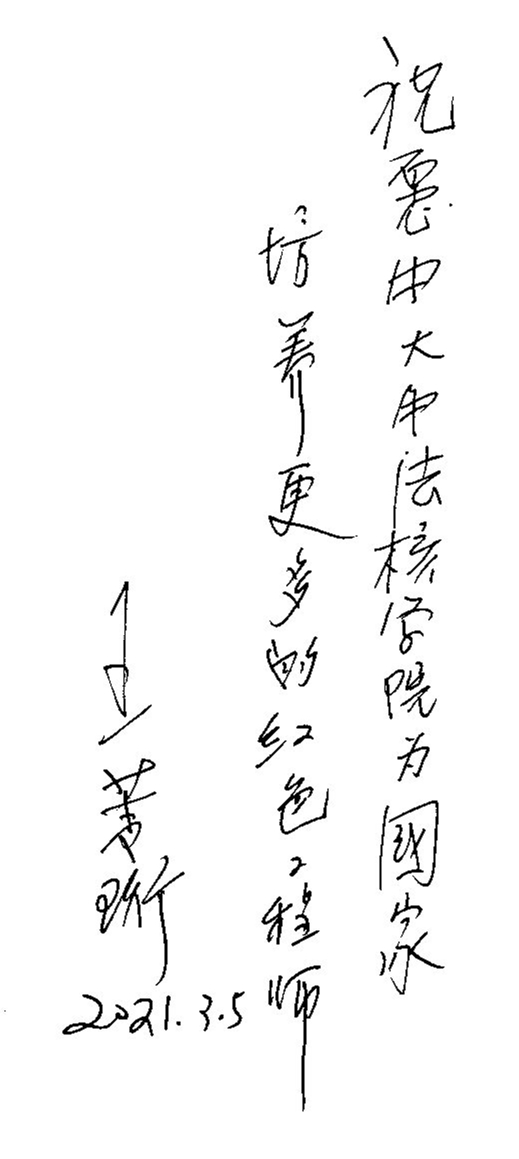 祝愿中大中法核学院为國家
培养更多的红色工程师
王乃彦
2021.3.5